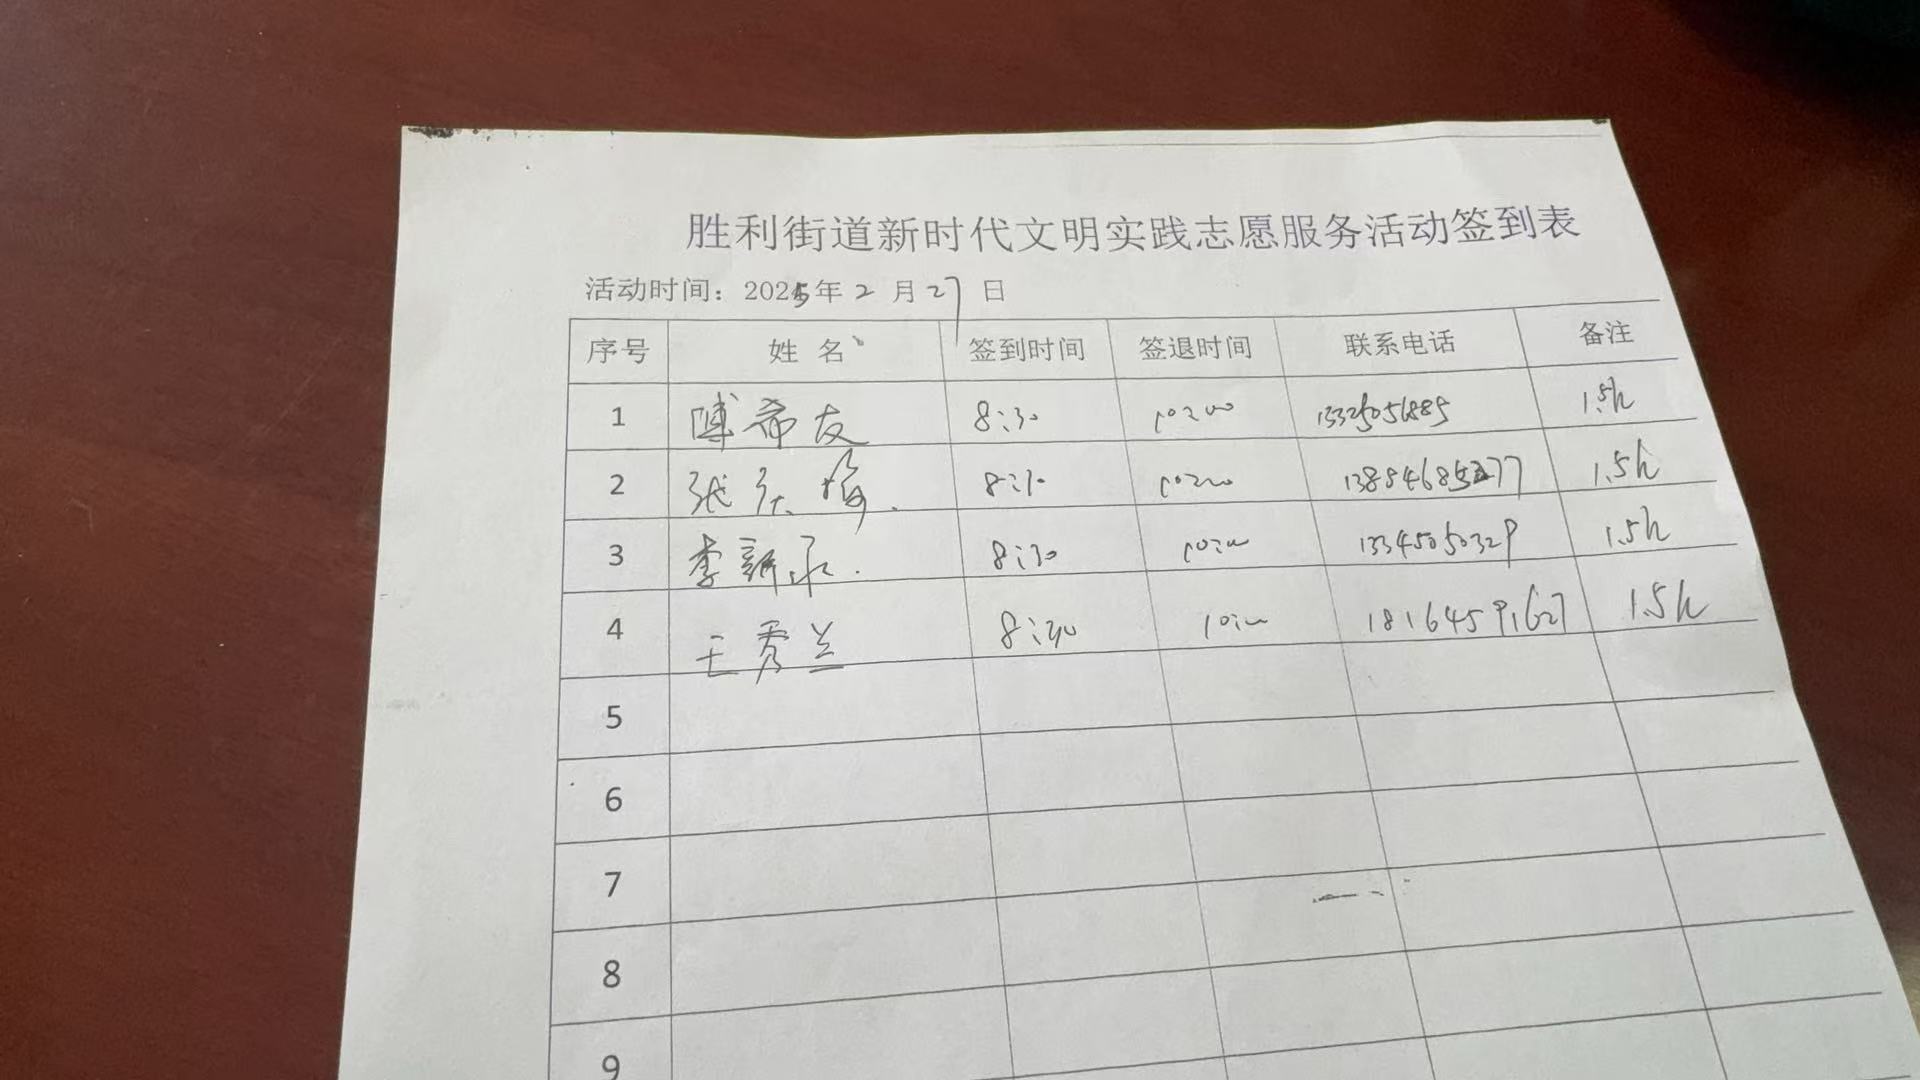 胜利街道新时代文明实践志愿服务活动签到表
活动时间：2025年2月27日
序号 姓名 签到时间 签退时间 联系电话 备注
1 陳希友 8:30 10:00 1.5h
2 张庆梅 8:30 10:00 1.5h
3 李新永 8:30 10:00 13345050329 1.5h
4 王秀兰 8:30 10:00 18164591627 1.5h
5
6
7
8
9